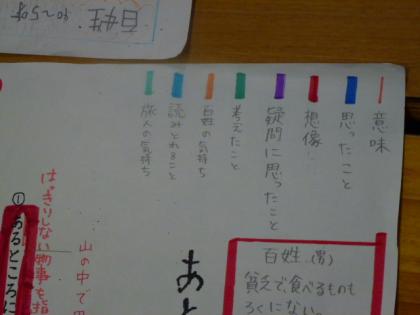 意味
思ったこと
想像
疑問に思ったこと
考えたこと
百姓の気持ち
読みとれること
旅人の気持ち
百姓(男)
貧乏で、食べるものも
ろくにない。
あと
山の中で
はっきりしない物事を指
①あるところに
百姓